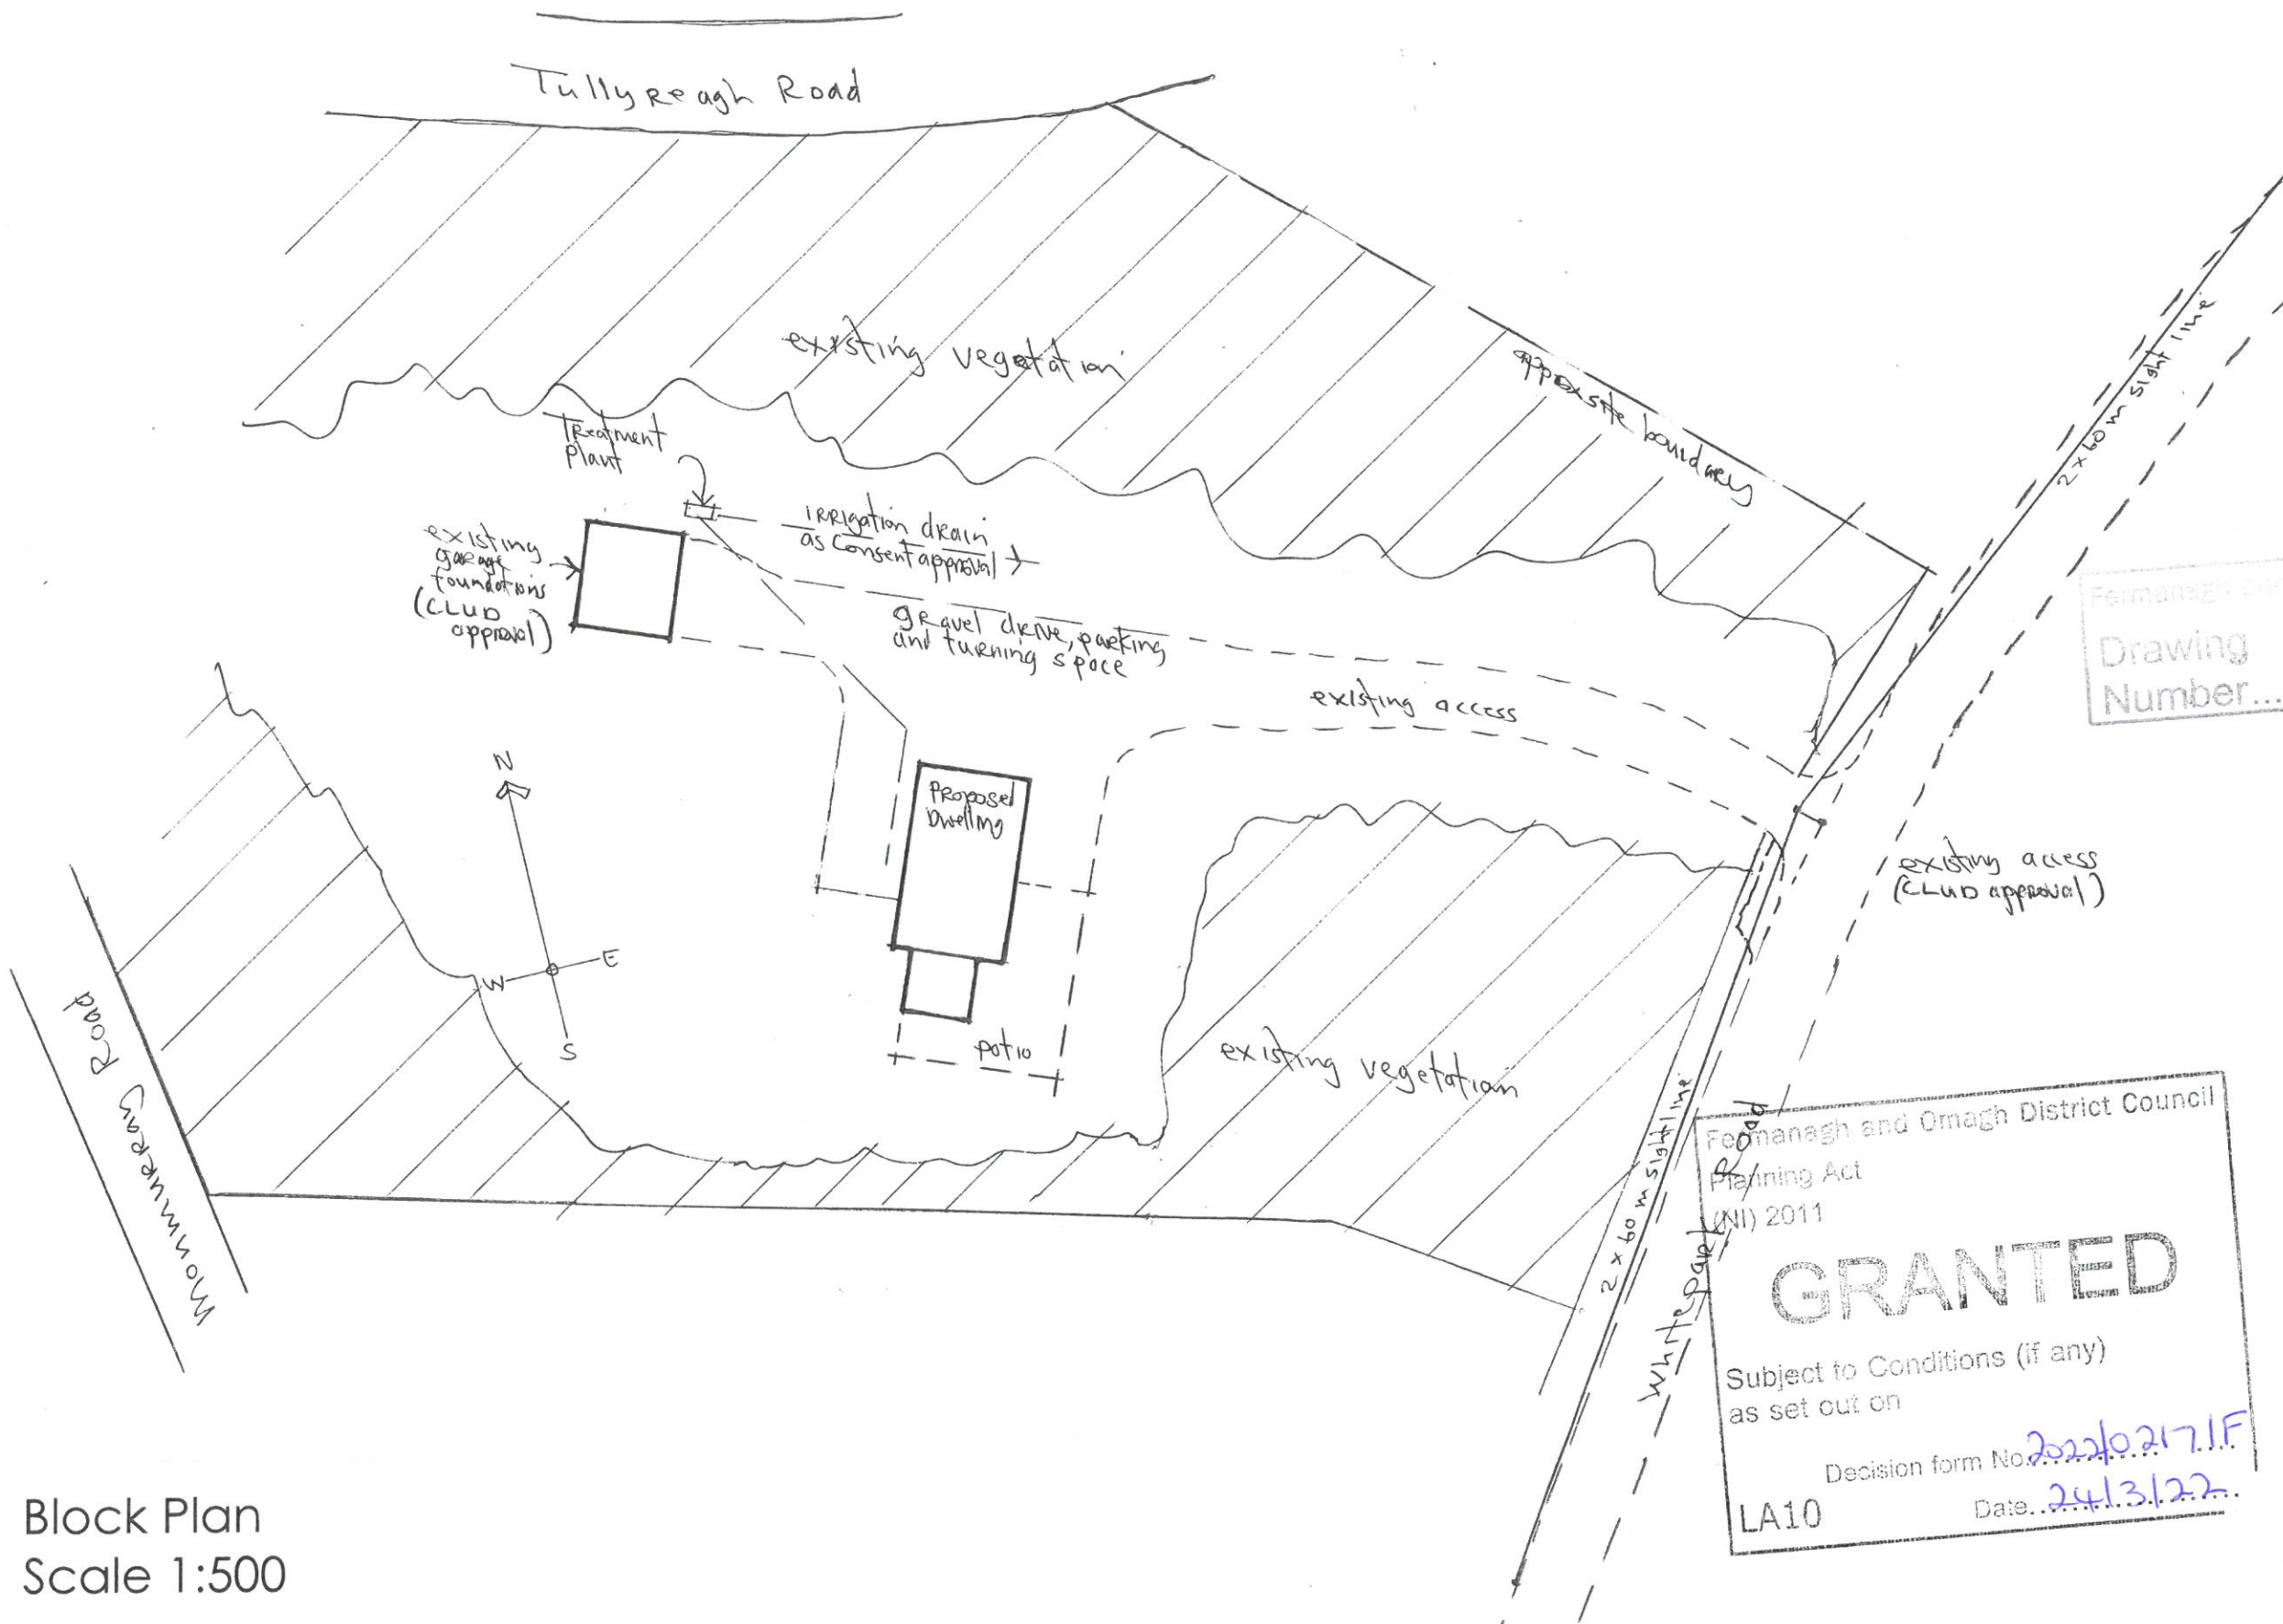 Tullyreagh Road
existing vegetation
approx site boundary
2 x 60 m sight line
Treatment
Plant
irrigation drain
as Consent approval
existing
garage
foundations
(CLUD
approval)
gravel drive, parking
and turning space
existing access
Fermanagh and
Drawing
Number...
N
W
E
S
Proposed
Dwelling
existing access
(CLUD approval)
patio
existing vegetation
Monmurray Road
2 x 60 m sight line
Whitepark Road
Fermanagh and Omagh District Council
Planning Act
(NI) 2011
GRANTED
Subject to Conditions (if any)
as set out on
Decision form No. 2022/0217/F
Date. 24/3/22
LA10
Block Plan
Scale 1:500